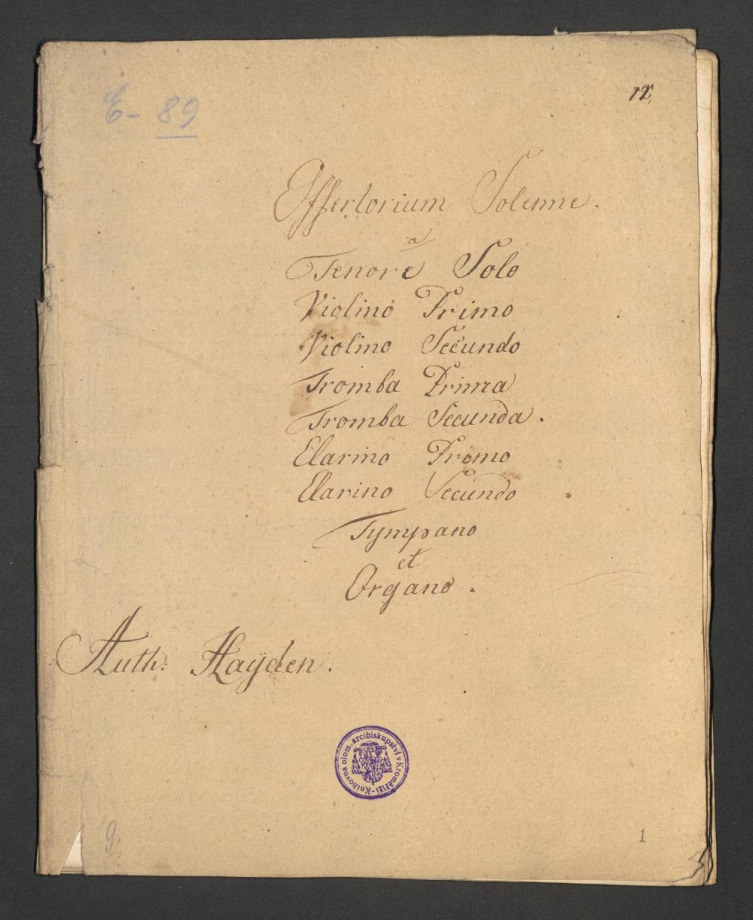 E- 89
Effertorium Solemne.
a
Tenore Solo
Violino Primo
Violino Secundo
Tromba Prima
Tromba Secunda.
Clarino Primo
Clarino Secundo
Tympano
et
Organo.
Auth: Hayden.
Knihovna olom. arcibiskupství v Kroměříži
9.
1